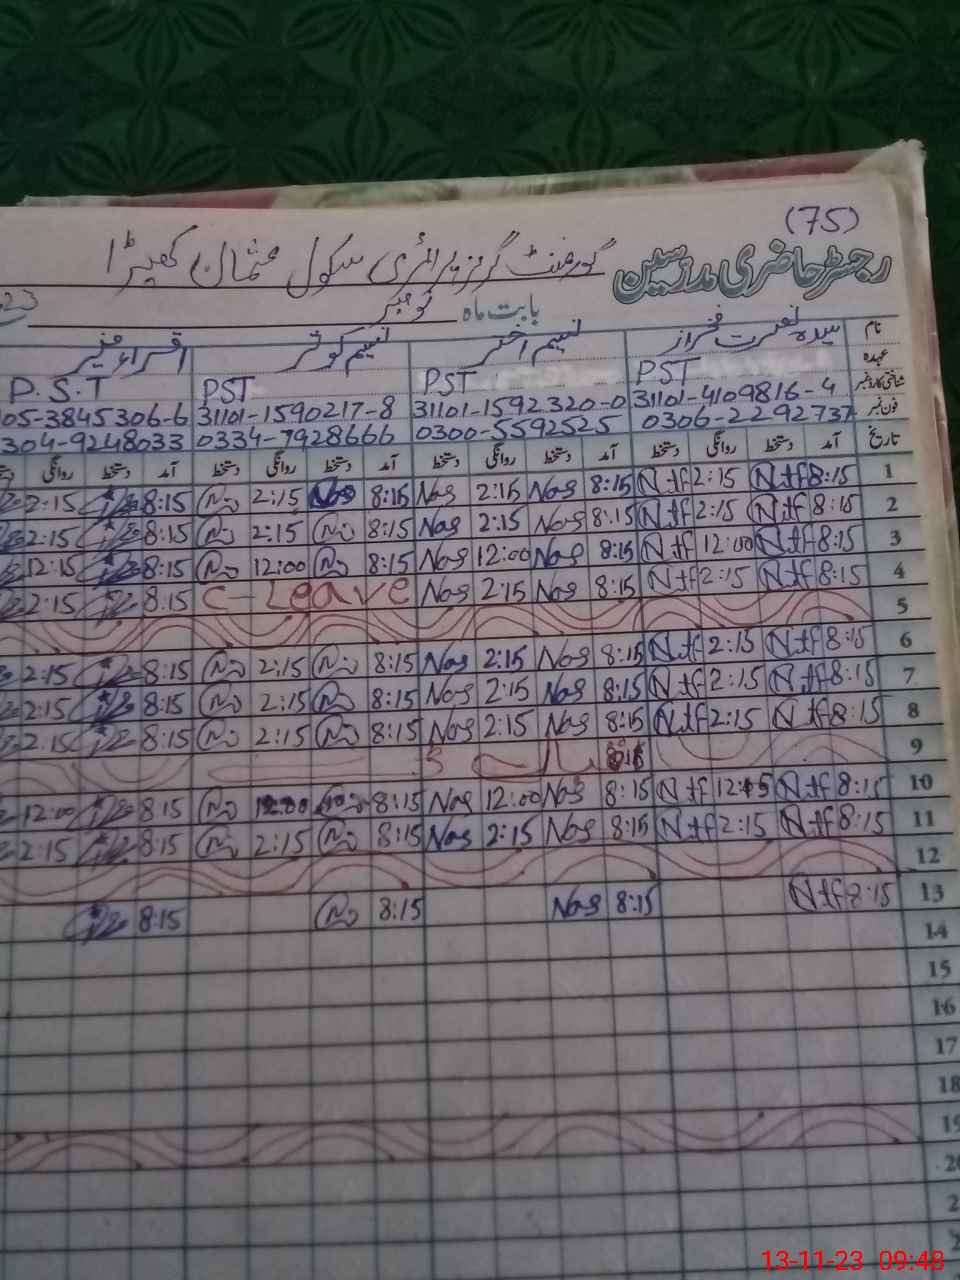 (75)
رجسٹر حاضری مدرسین گورنمنٹ گرلز پرائمری سکول عثمان کھیڑا
بابت ماہ نومبر 23
نام سیدہ نصرت فراز نسیم اختر نسیم کوثر اقراء
عہدہ PST PST PST P.S.T
شناختی کارڈ نمبر 31101-4109816-4 31101-1592320-0 31101-1590217-8 05-3845306-6
فون نمبر 0306-2292737 0300-5592525 0334-7928666 304-9248033
تاریخ آمد دستخط روانگی دستخط آمد دستخط روانگی دستخط آمد دستخط روانگی دستخط آمد دستخط روانگی
1 8:15 Ntf 2:15 Ntf 8:15 Nas 2:15 Nas 8:15 2:15 8:15 2:15
2 8:15 Ntf 2:15 Ntf 8:15 Nas 2:15 Nas 8:15 2:15 8:15 2:15
3 8:15 Ntf 12:00 Ntf 8:15 Nas 12:00 Nas 8:15 12:00 8:15 12:15
4 8:15 Ntf 2:15 Ntf 8:15 Nas 2:15 Nas C-Leave 8:15 2:15
5
6 8:15 Ntf 2:15 Ntf 8:15 Nas 2:15 Nas 8:15 2:15 8:15 2:15
7 8:15 Ntf 2:15 Ntf 8:15 Nas 2:15 Nas 8:15 2:15 8:15 2:15
8 8:15 Ntf 2:15 Ntf 8:15 Nas 2:15 Nas 8:15 2:15 8:15 2:15
9
10 8:15 Ntf Ntf 8:15 Nas 12:00 Nas 8:15 12:00 8:15 12:00
11 8:15 Ntf 2:15 Ntf 8:15 Nas 2:15 Nas 8:15 2:15 8:15 2:15
12
13 8:15 Ntf 8:15 Nas 8:15 8:15
14
15
16
17
18
19
20
13-11-23 09:48